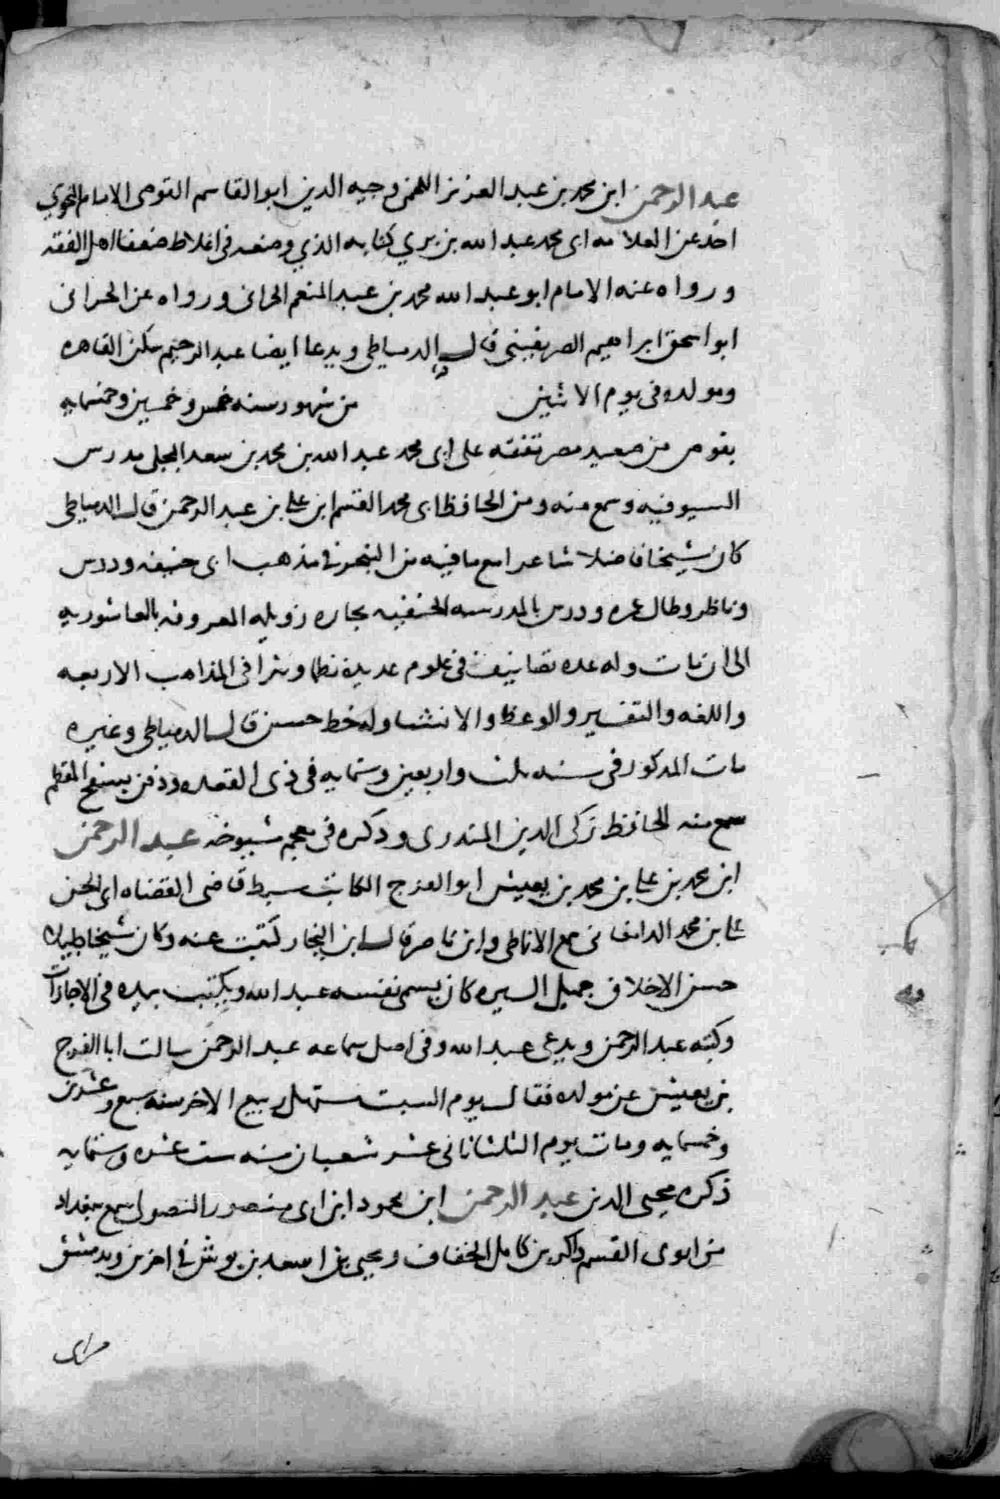 عبد الرحمن ابن محمد بن عبد العزيز اللخمي وجيه الدين ابو القاسم القوصي الامام النحوي
اخذ عن العلامه ابي محمد عبد الله بن بري كتابه الذي وضعه في اغلاط ضعفا اهل الفقه
ورواه عنه الامام ابو عبد الله محمد بن عبد المنعم الحراني ورواه عن الحراني
ابو اسحق ابراهيم الصريفيني قال الدمياطي ويدعا ايضا عبد الرحيم سكن القاهره
ومولده في يوم الاثنين من شهور سنه خمس وخمسين وخمسمايه
بقوص من صعيد مصر تفقه على ابي محمد عبد الله بن محمد بن سعد البجلي مدرس
السيوفيه وسمع منه ومن الحافظ ابي محمد القسم ابن علي بن عبد الرحمن قال الدمياطي
كان شيخا فاضلا شاعرا مع ما فيه من التبحر في مذهب ابي حنيفه ودرس
وناظر وطال عمره ودرس بالمدرسه الحنفيه بحاره زويله المعروفه بالعاشوريه
الى ان مات وله عده تصانيف في علوم عديدة نظما ونثرا في المذاهب الاربعه
واللغه والتفسير والوعظ والانشا وله خط حسن قال الدمياطي وغيره
مات المذكور في سنه ثلث واربعين وستمايه في ذي القعده ودفن بسفح المقطم
سمع منه الحافظ زكى الدين المنذري وذكره في معجم شيوخه عبد الرحمن
ابن محمد بن علي بن محمد بن يعيش ابو الفرج الكاتب سبط قاضي القضاه ابي الحسن
علي بن محمد الدامغاني سمع الانماطي وابن ناصر قال ابن النجار كتبت عنه وكان شيخا
حسن الاخلاق جميل السيره كان يسمى نفسه عبد الله ويكتب بيده في الاجازات
وكتبه عبد الرحمن ويدعى عبد الله وفي اصل سماعه عبد الرحمن سالت ابا الفرج
بن يعيش عن مولده فقال يوم السبت مستهل ربيع الاخر سنه سبع وعشرين
وخمسمايه ومات يوم الثلثا ثاني عشر شعبان سنه ست عشره وستمايه
ذكره محيى الدين عبد الرحمن ابن محمود ابن ابي منصور النصولي سمع ببغداد
من ابوي القسم ذاكر بن كامل الخفاف ويحيى بن اسعد بن بوش في اخرين وبدمشق
من ابي